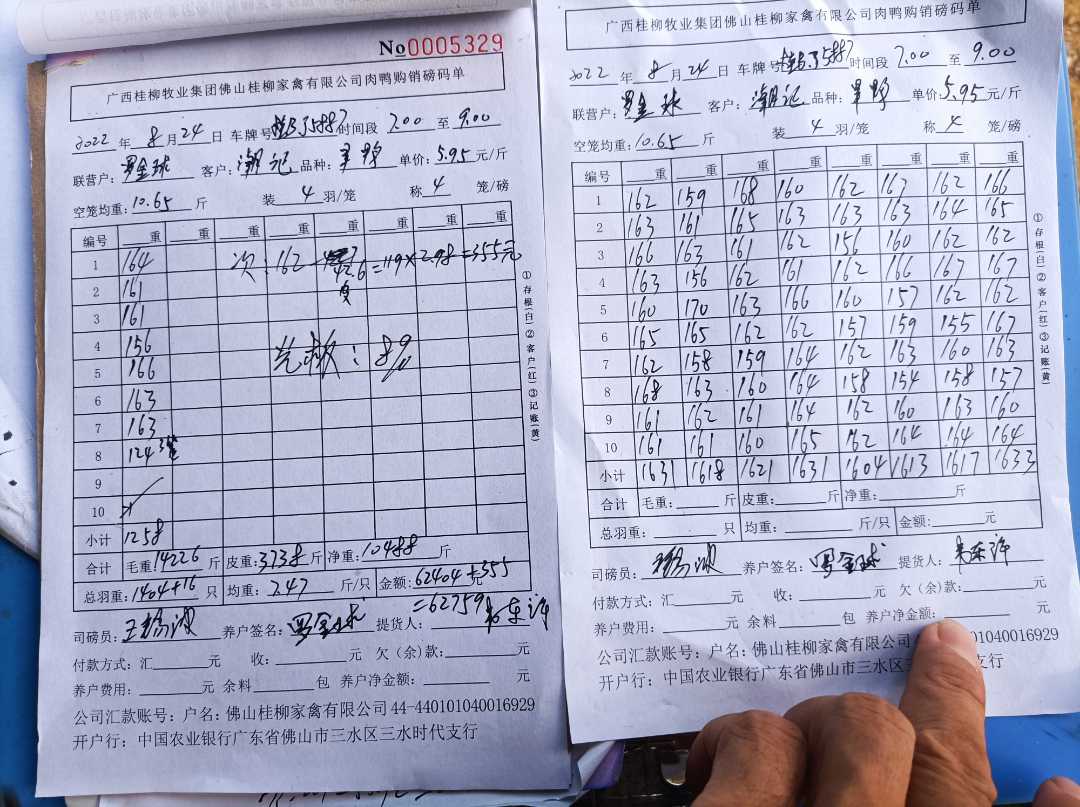 No 0005329
广西桂柳牧业集团佛山桂柳家禽有限公司肉鸭购销磅码单
2022 年 8 月 24 日 车牌号 时间段 7.00 至 9.00
联营户: 罗金球 客户: 潮记 品种: 单价: 5.95 元/斤
空笼均重: 10.65 斤 装 4 羽/笼 称 4 笼/磅
编号 重 重 重 重 重 重 重 重
1 164 次: 162 - 42.6 = 119 × 2.98 = 355元
2 161
3 161
4 156
5 166 8%
6 163
7 163
8 124 3笼
9
10
小计 1258
合计 毛重: 14226 斤 皮重: 3738 斤 净重: 10488 斤
总羽重: 1404+16 只 均重: 7.47 斤/只 金额: 62404 + 355 元
= 62759
司磅员: 养户签名: 罗金球 提货人:
付款方式: 汇 元 收: 元 欠(余)款: 元
养户费用: 元 余料 包 养户净金额: 元
公司汇款账号: 户名: 佛山桂柳家禽有限公司 44-440101040016929
开户行: 中国农业银行广东省佛山市三水区三水时代支行
①存根(白)②客户(红)③记账(黄)
广西桂柳牧业集团佛山桂柳家禽有限公司肉鸭购销磅码单
2022 年 8 月 24 日 车牌号 时间段 7.00 至 9.00
联营户: 罗金球 客户: 潮记 品种: 单价: 5.95 元/斤
空笼均重: 10.65 斤 装 4 羽/笼 称 4 笼/磅
编号 重 重 重 重 重 重 重 重
1 162 159 168 160 162 167 162 166
2 163 161 165 163 163 163 164 165
3 166 163 161 162 156 160 162 162
4 163 156 162 161 162 166 167 167
5 160 170 163 166 160 157 162 162
6 165 165 162 162 157 159 155 167
7 162 158 159 164 162 163 160 163
8 168 163 160 164 158 154 158 157
9 161 162 161 164 162 160 163 160
10 161 161 160 165 162 164 164 164
小计 1631 1618 1621 1631 1604 1613 1617 1633
合计 毛重: 斤 皮重: 斤 净重: 斤
总羽重: 只 均重: 斤/只 金额: 元
司磅员: 养户签名: 罗金球 提货人:
付款方式: 汇 元 收: 元 欠(余)款: 元
养户费用: 元 余料 包 养户净金额: 元
公司汇款账号: 户名: 佛山桂柳家禽有限公司 01040016929
开户行: 中国农业银行广东省佛山市三水区三 支行
①存根(白)②客户(红)③记账(黄)